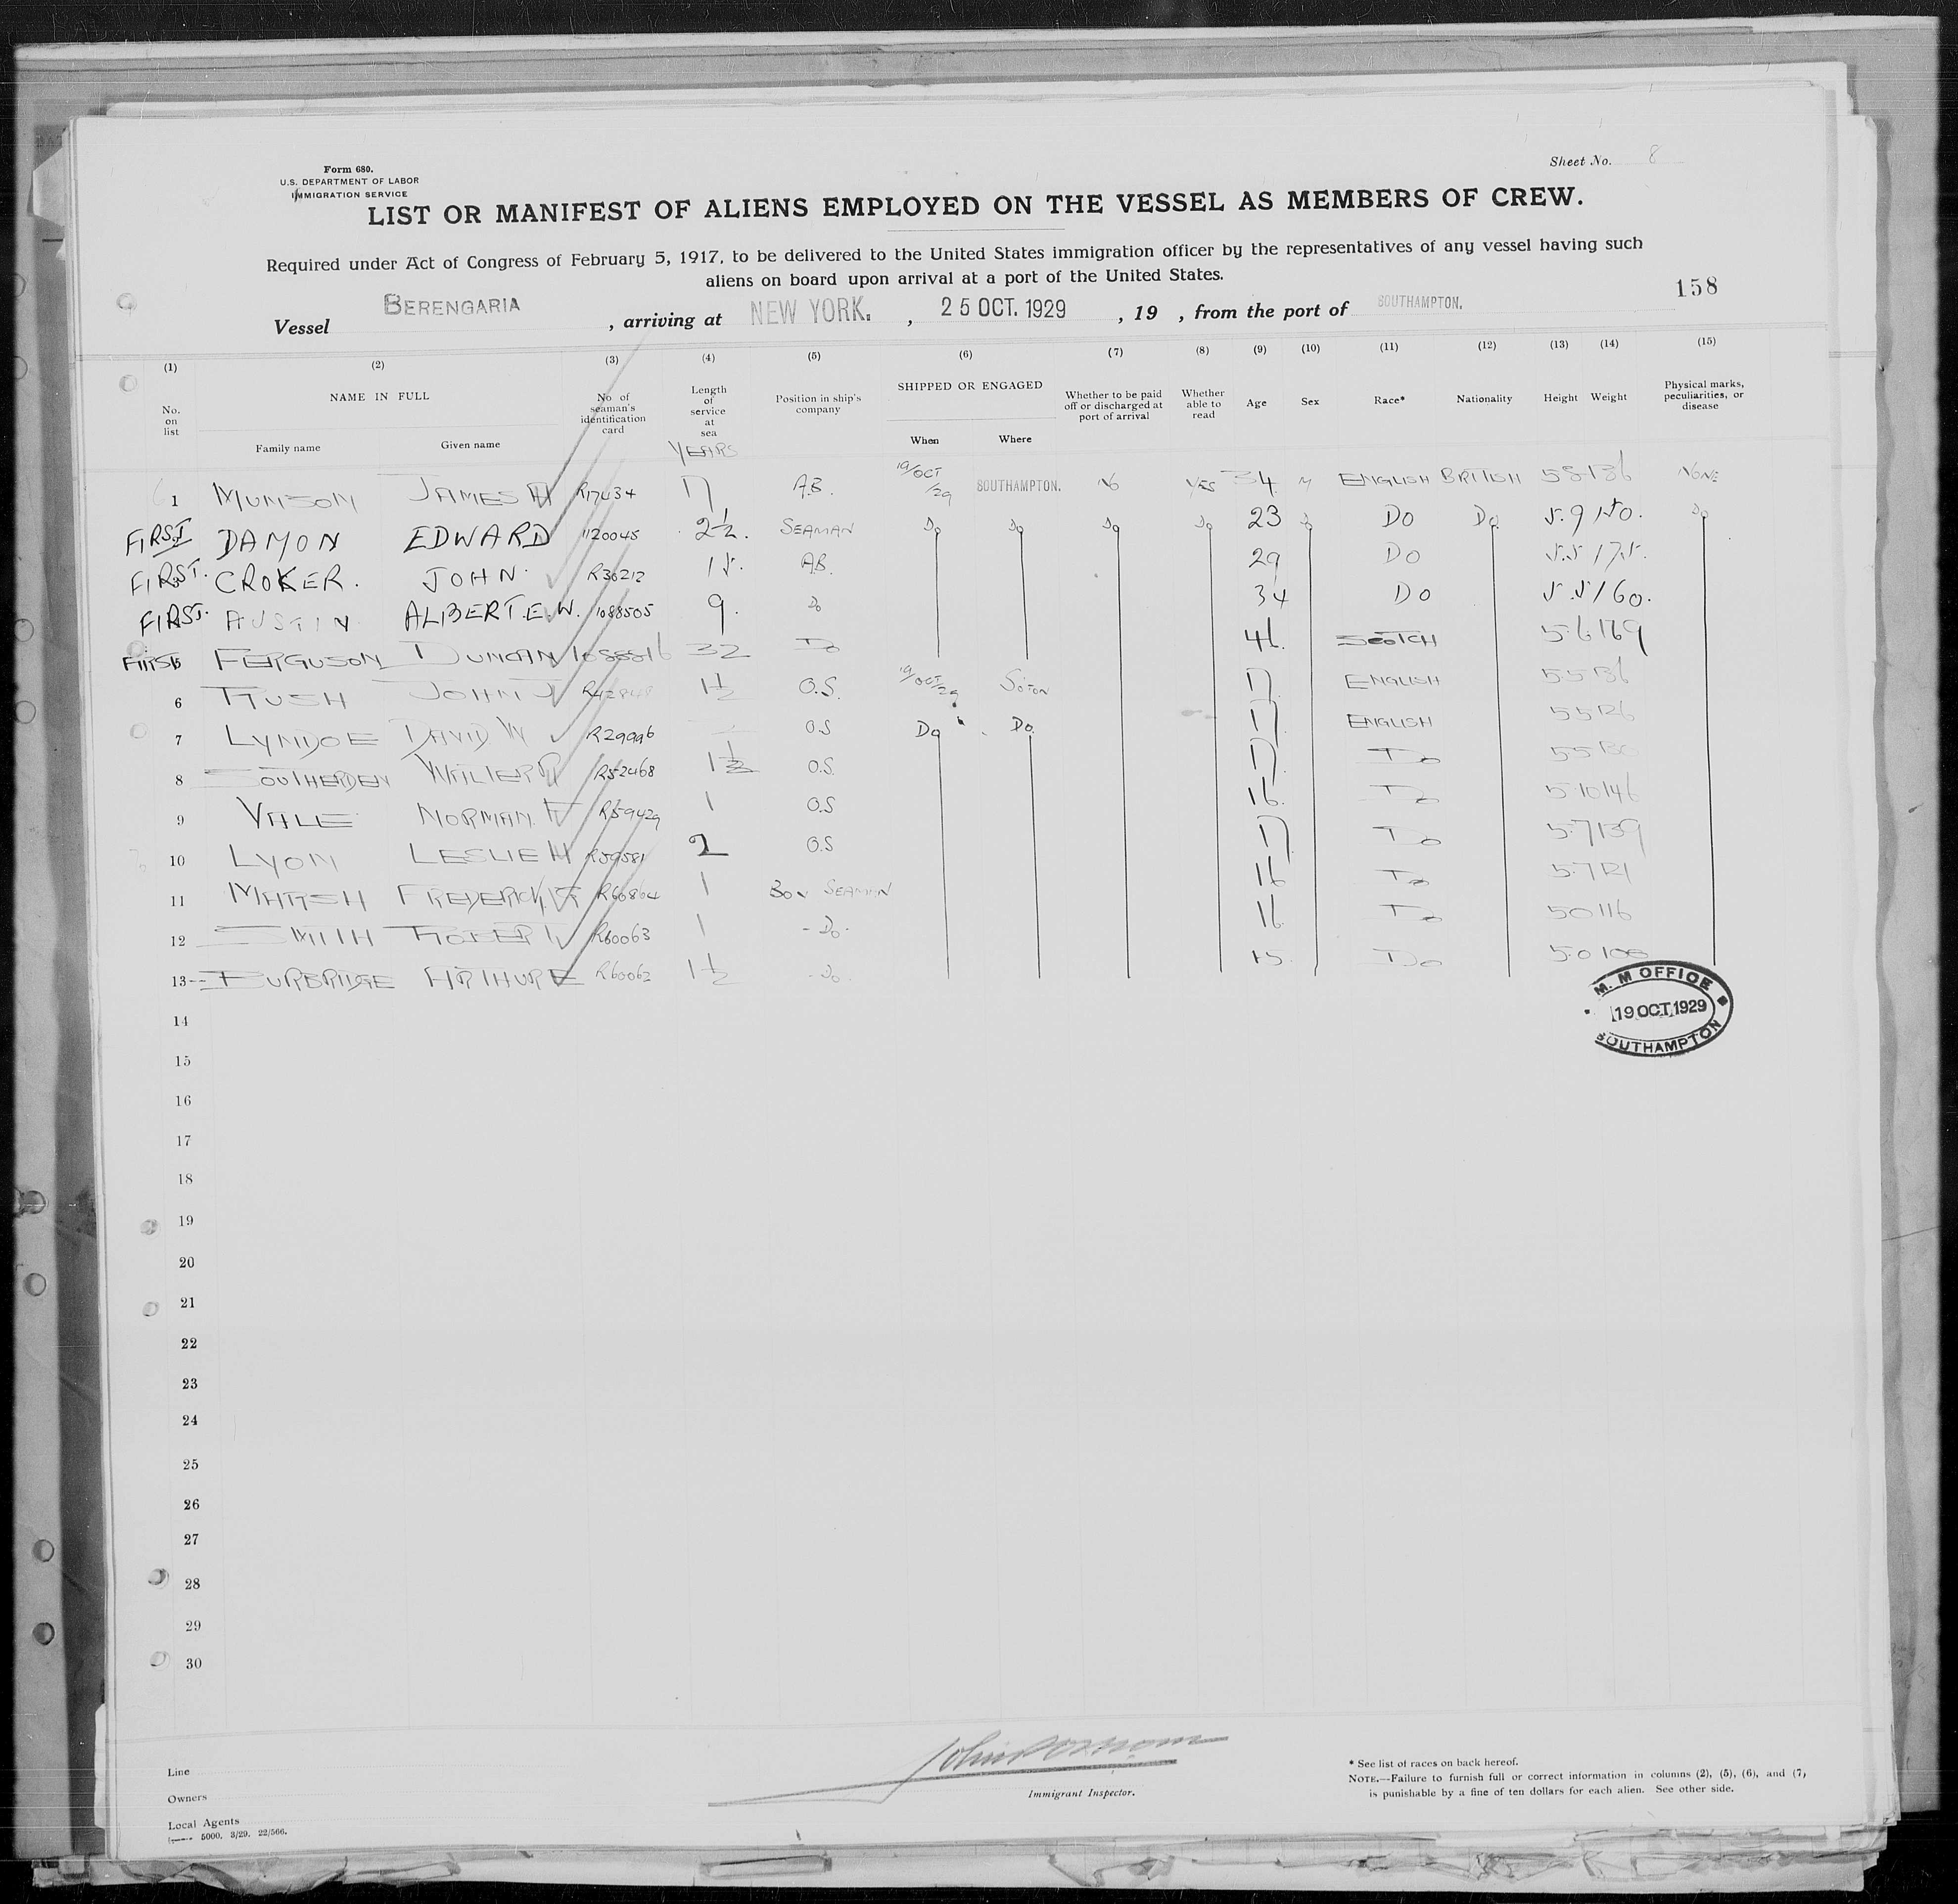 Form 680.
U.S. DEPARTMENT OF LABOR
IMMIGRATION SERVICE
Sheet No. 8
LIST OR MANIFEST OF ALIENS EMPLOYED ON THE VESSEL AS MEMBERS OF CREW.
Required under Act of Congress of February 5, 1917, to be delivered to the United States immigration officer by the representatives of any vessel having such
aliens on board upon arrival at a port of the United States.
158
Vessel BERENGARIA , arriving at NEW YORK. , 25 OCT. 1929 , 19 , from the port of SOUTHAMPTON.
(1) (2) (3) (4) (5) (6) (7) (8) (9) (10) (11) (12) (13) (14) (15)
No. on list NAME IN FULL Family name Given name No of seaman's identification card Length of service at sea YEARS Position in ship's company SHIPPED OR ENGAGED When Where Whether to be paid off or discharged at port of arrival Whether able to read Age Sex Race* Nationality Height Weight Physical marks, peculiarities, or disease
1 MUNSON JAMES A R17434 17 A.B. 19/OCT/29 SOUTHAMPTON. NO YES 34 M ENGLISH BRITISH 5.8 136 NONE
FIRST DAMON EDWARD 1120045 2½. SEAMAN Do Do Do Do 23 Do Do Do 5.9 150. Do
FIRST. CROKER. JOHN. R30212 15. A.B. 29 Do 5.5 175.
FIRST. AUSTIN ALBERT.E.W. 1088505 9. Do 34 Do 5.5 160.
FIRST 5 FERGUSON DUNCAN 1088816 32 Do 46. SCOTCH 5.6 169
6 RUSH JOHN J 1½ O.S. 19/OCT/29 So'TON 17 ENGLISH 5.5 136
7 LYNDOE DAVID W R29996 O.S Do Do. 17 ENGLISH 5.5 126
8 SOUTHERDEN WALTER R52468 1½ O.S. 17 Do 5.5 130
9 VALE NORMAN. F R59429 1 O.S 16. Do 5.10 146
10 LYON LESLIE H R59581 2 O.S 17 Do 5.7 139
11 MARSH FREDERICK R60864 1 BOY SEAMAN 16 Do 5.7 121
12 SMITH ROBERT R60063 1 - Do - 16. Do 5 0 116
13 BURBRIDGE ARTHUR E R60062 1½ - Do. 15. Do 5.0 100
M. M OFFICE
19 OCT. 1929
SOUTHAMPTON
14
15
16
17
18
19
20
21
22
23
24
25
26
27
28
29
30
Line
Owners
Local Agents
5000. 3/29. 22/566.
Immigrant Inspector.
* See list of races on back hereof.
NOTE.—Failure to furnish full or correct information in columns (2), (5), (6), and (7)
is punishable by a fine of ten dollars for each alien. See other side.